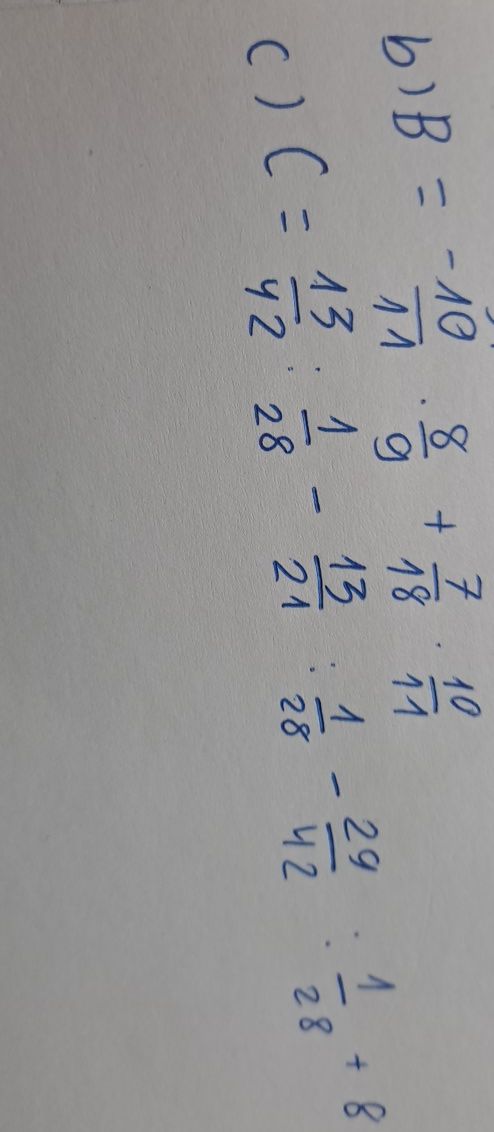 b) B = -10/11 . 8/9 + 7/18 . 10/11
c) C = 13/42 : 1/28 - 13/21 : 1/28 - 29/42 : 1/28 + 8